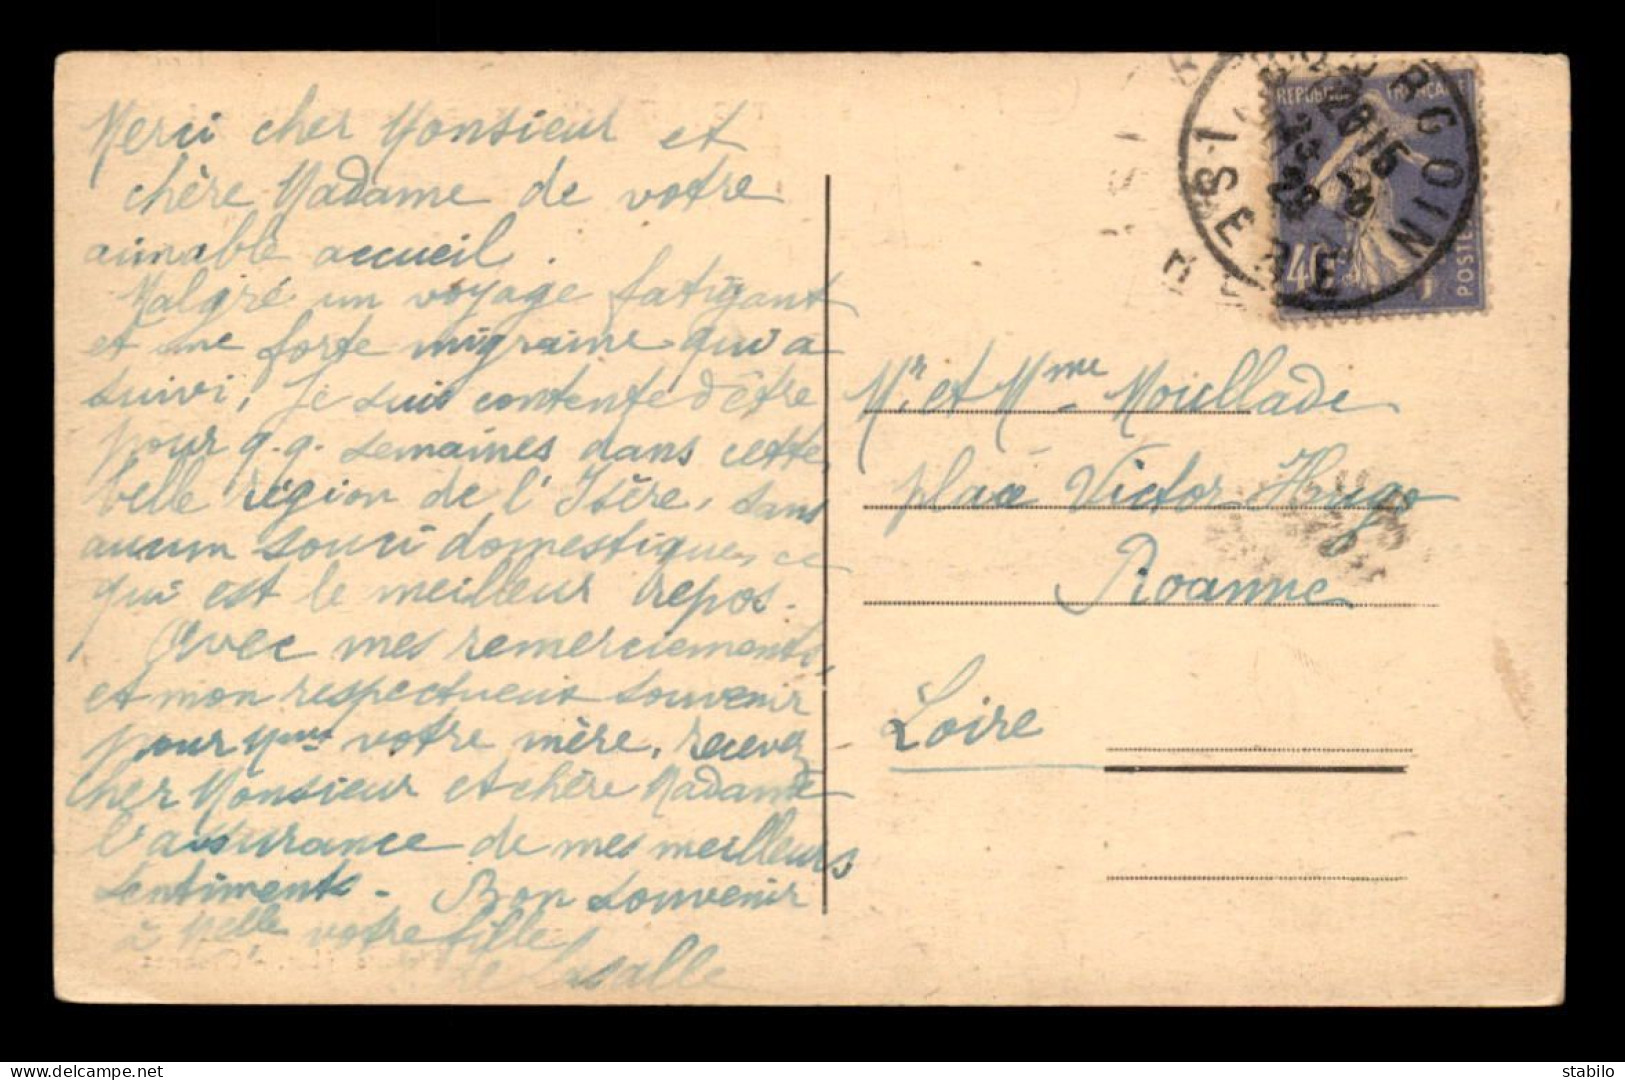 Merci cher Monsieur et
chère Madame de votre
aimable accueil.
Malgré un voyage fatigant
et une forte migraine qui a
suivi, je suis contente d'être
pour q.q. semaines dans cette
belle région de l'Isère, sans
aucun souci domestique, ce
qui est le meilleur repos.
Avec mes remerciements,
et mon respectueux souvenir
pour Mme votre mère, recevez
cher Monsieur et chère Madame
l'assurance de mes meilleurs
sentiments - Bon souvenir
à Melle votre fille
de Lasalle
BOURGOIN
ISERE
REPUBLIQUE FRANCAISE
40c
POSTES
Mr et Mme Moullade
place Victor Hugo
Roanne
Loire
delcampe.net
stabilo